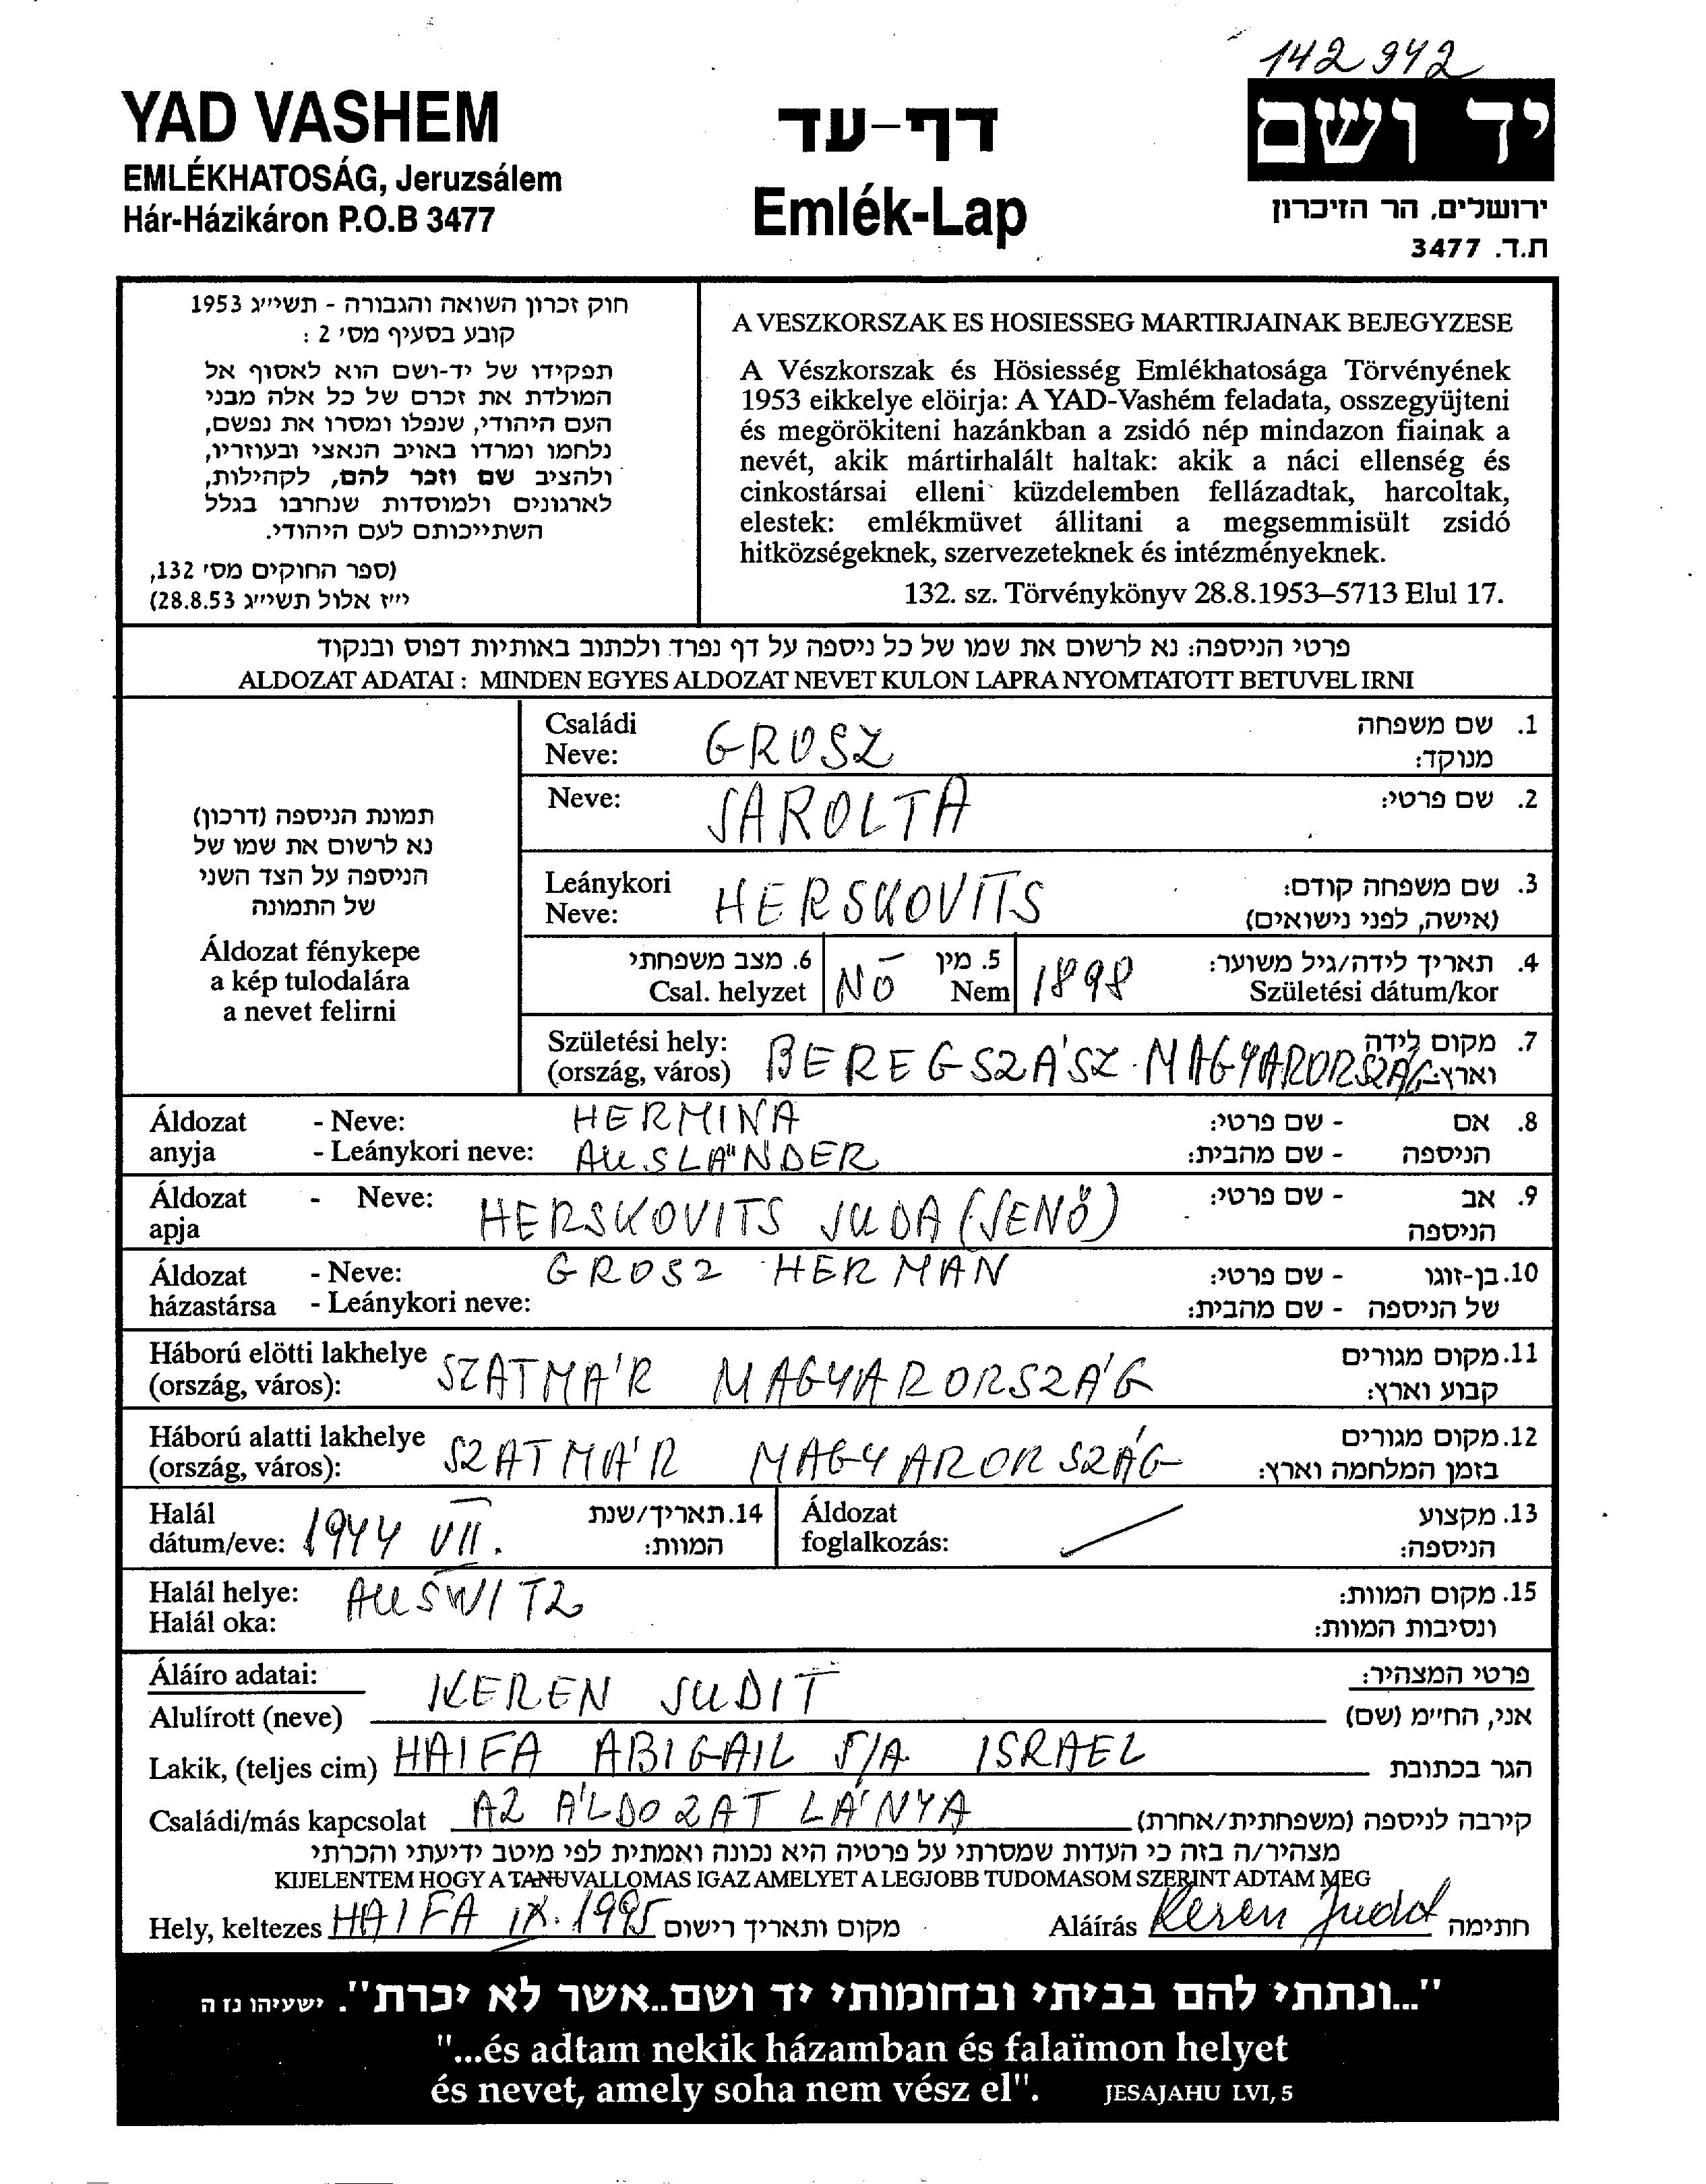 142942
YAD VASHEM
EMLÉKHATOSÁG, Jeruzsálem
Hár-Házikáron P.O.B 3477
דף-עד
Emlék-Lap
יד ושם
ירושלים, הר הזיכרון
ת.ד. 3477
חוק זכרון השואה והגבורה - תשי״ג 1953
קובע בסעיף מס׳ 2 :
תפקידו של יד-ושם הוא לאסוף אל
המולדת את זכרם של כל אלה מבני
העם היהודי, שנפלו ומסרו את נפשם,
נלחמו ומרדו באויב הנאצי ובעוזריו,
ולהציב שם וזכר להם, לקהילות,
לארגונים ולמוסדות שנחרבו בגלל
השתייכותם לעם היהודי.
(ספר החוקים מס׳ 132,
י״ז אלול תשי״ג 28.8.53)
A VESZKORSZAK ES HOSIESSEG MARTIRJAINAK BEJEGYZESE
A Vészkorszak és Hösiesség Emlékhatosága Törvényének
1953 eikkelye elöirja: A YAD-Vashém feladata, osszegyüjteni
és megörökiteni hazánkban a zsidó nép mindazon fiainak a
nevét, akik mártirhalált haltak: akik a náci ellenség és
cinkostársai elleni küzdelemben fellázadtak, harcoltak,
elestek: emlékmüvet állitani a megsemmisült zsidó
hitközségeknek, szervezeteknek és intézményeknek.
132. sz. Törvénykönyv 28.8.1953–5713 Elul 17.
פרטי הניספה: נא לרשום את שמו של כל ניספה על דף נפרד ולכתוב באותיות דפוס ובנקוד
ALDOZAT ADATAI : MINDEN EGYES ALDOZAT NEVET KULON LAPRA NYOMTATOTT BETUVEL IRNI
תמונת הניספה (דרכון)
נא לרשום את שמו של
הניספה על הצד השני
של התמונה
Áldozat fénykepe
a kép tulodalára
a nevet felirni
Családi Neve: GROSZ 1. שם משפחה מנוקד:
Neve: SAROLTA 2. שם פרטי:
Leánykori Neve: HERSKOVITS 3. שם משפחה קודם: (אישה, לפני נישואים)
6. מצב משפחתי Csal. helyzet NŐ 5. מין Nem 1898 4. תאריך לידה/גיל משוער: Születési dátum/kor
Születési hely: (ország, város) BEREGSZÁSZ MAGYARORSZÁG 7. מקום לידה וארץ:
Áldozat anyja - Neve: HERMINA - שם פרטי: 8. אם
- Leánykori neve: AUSLÄNDER - שם מהבית: הניספה
Áldozat apja - Neve: HERSKOVITS JUDA (JENŐ) - שם פרטי: 9. אב הניספה
Áldozat - Neve: GROSZ HERMAN - שם פרטי: 10. בן-זוגו
házastársa - Leánykori neve: - שם מהבית: של הניספה
Háború elötti lakhelye (ország, város): SZATMÁR MAGYARORSZÁG 11. מקום מגורים קבוע וארץ:
Háború alatti lakhelye (ország, város): SZATMÁR MAGYARORSZÁG 12. מקום מגורים בזמן המלחמה וארץ:
Halál dátum/eve: 1944 VII. 14. תאריך/שנת המוות: Áldozat foglalkozás: 13. מקצוע הניספה:
Halál helye: AUSWITZ 15. מקום המוות:
Halál oka: ונסיבות המוות:
Áláíro adatai: פרטי המצהיר:
Alulírott (neve) KEREN JUDIT אני, הח״מ (שם)
Lakik, (teljes cim) HAIFA ABIGAIL 5/A ISRAEL הגר בכתובת
Családi/más kapcsolat AZ ÁLDOZAT LÁNYA קירבה לניספה (משפחתית/אחרת)
מצהיר/ה בזה כי העדות שמסרתי על פרטיה היא נכונה ואמתית לפי מיטב ידיעתי והכרתי
KIJELENTEM HOGY A TANUVALLOMAS IGAZ AMELYET A LEGJOBB TUDOMASOM SZERINT ADTAM MEG
Hely, keltezes HAIFA IX. 1995 מקום ותאריך רישום Aláírás Keren Judit חתימה
"...ונתתי להם בביתי ובחומותי יד ושם..אשר לא יכרת". ישעיהו נז ה
"...és adtam nekik házamban és falaïmon helyet
és nevet, amely soha nem vész el". JESAJAHU LVI, 5